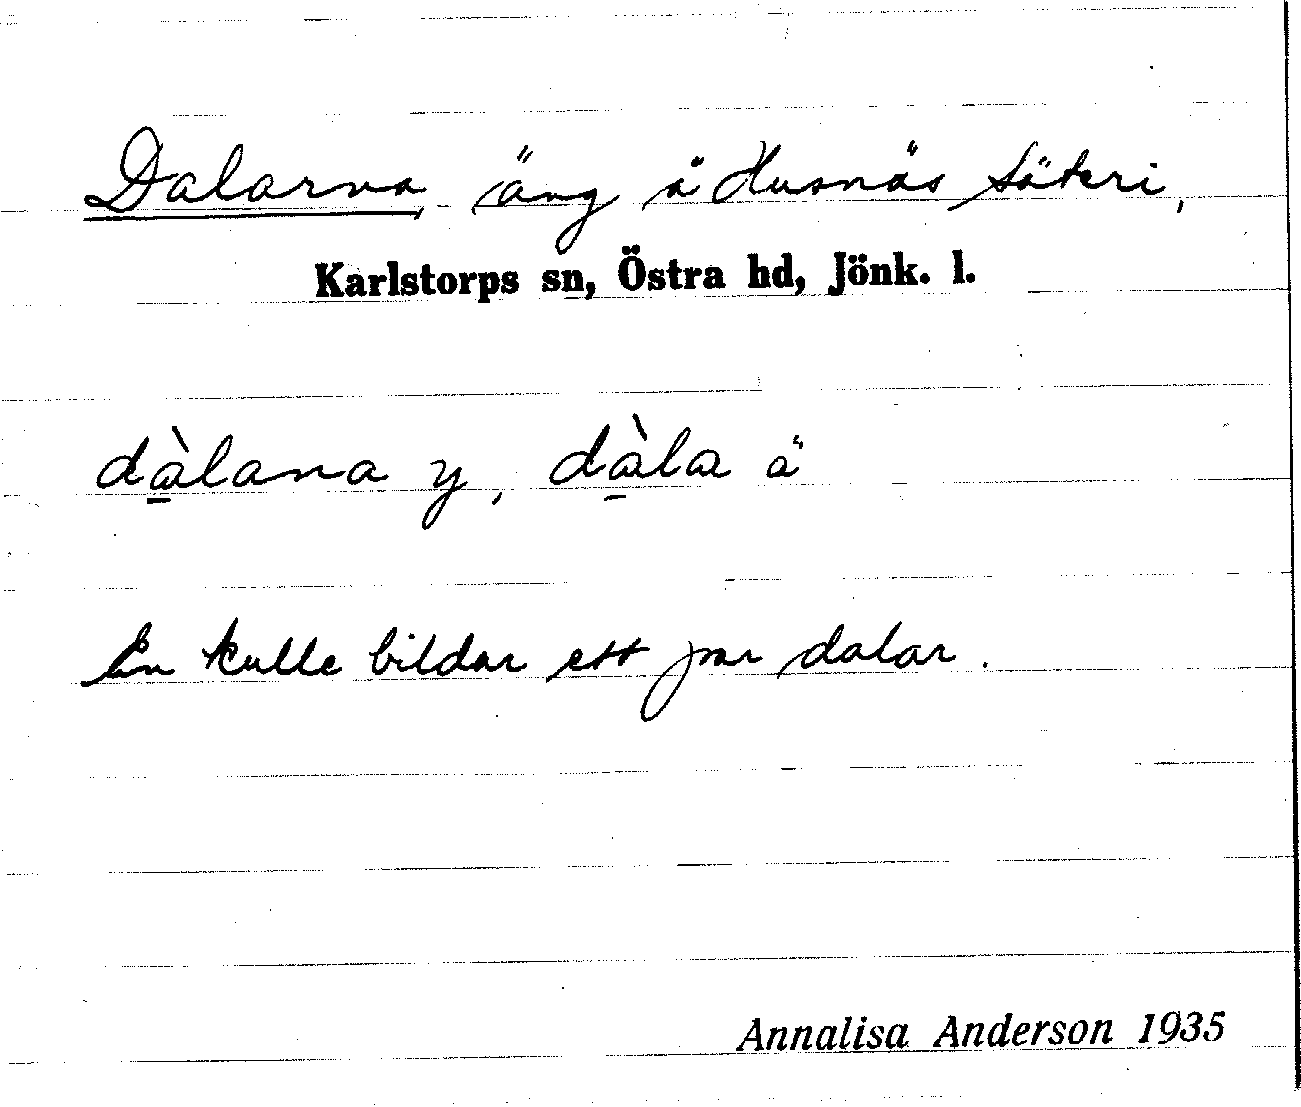 Dalarna, äng å Husnäs säteri,
Karlstorps sn, Östra hd, Jönk. l.
dàlana y, dàla ä
En kulle bildar ett par dalar.
Annalisa Anderson 1935